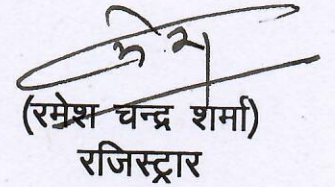 (रमेश चन्द्र शर्मा)
रजिस्ट्रार